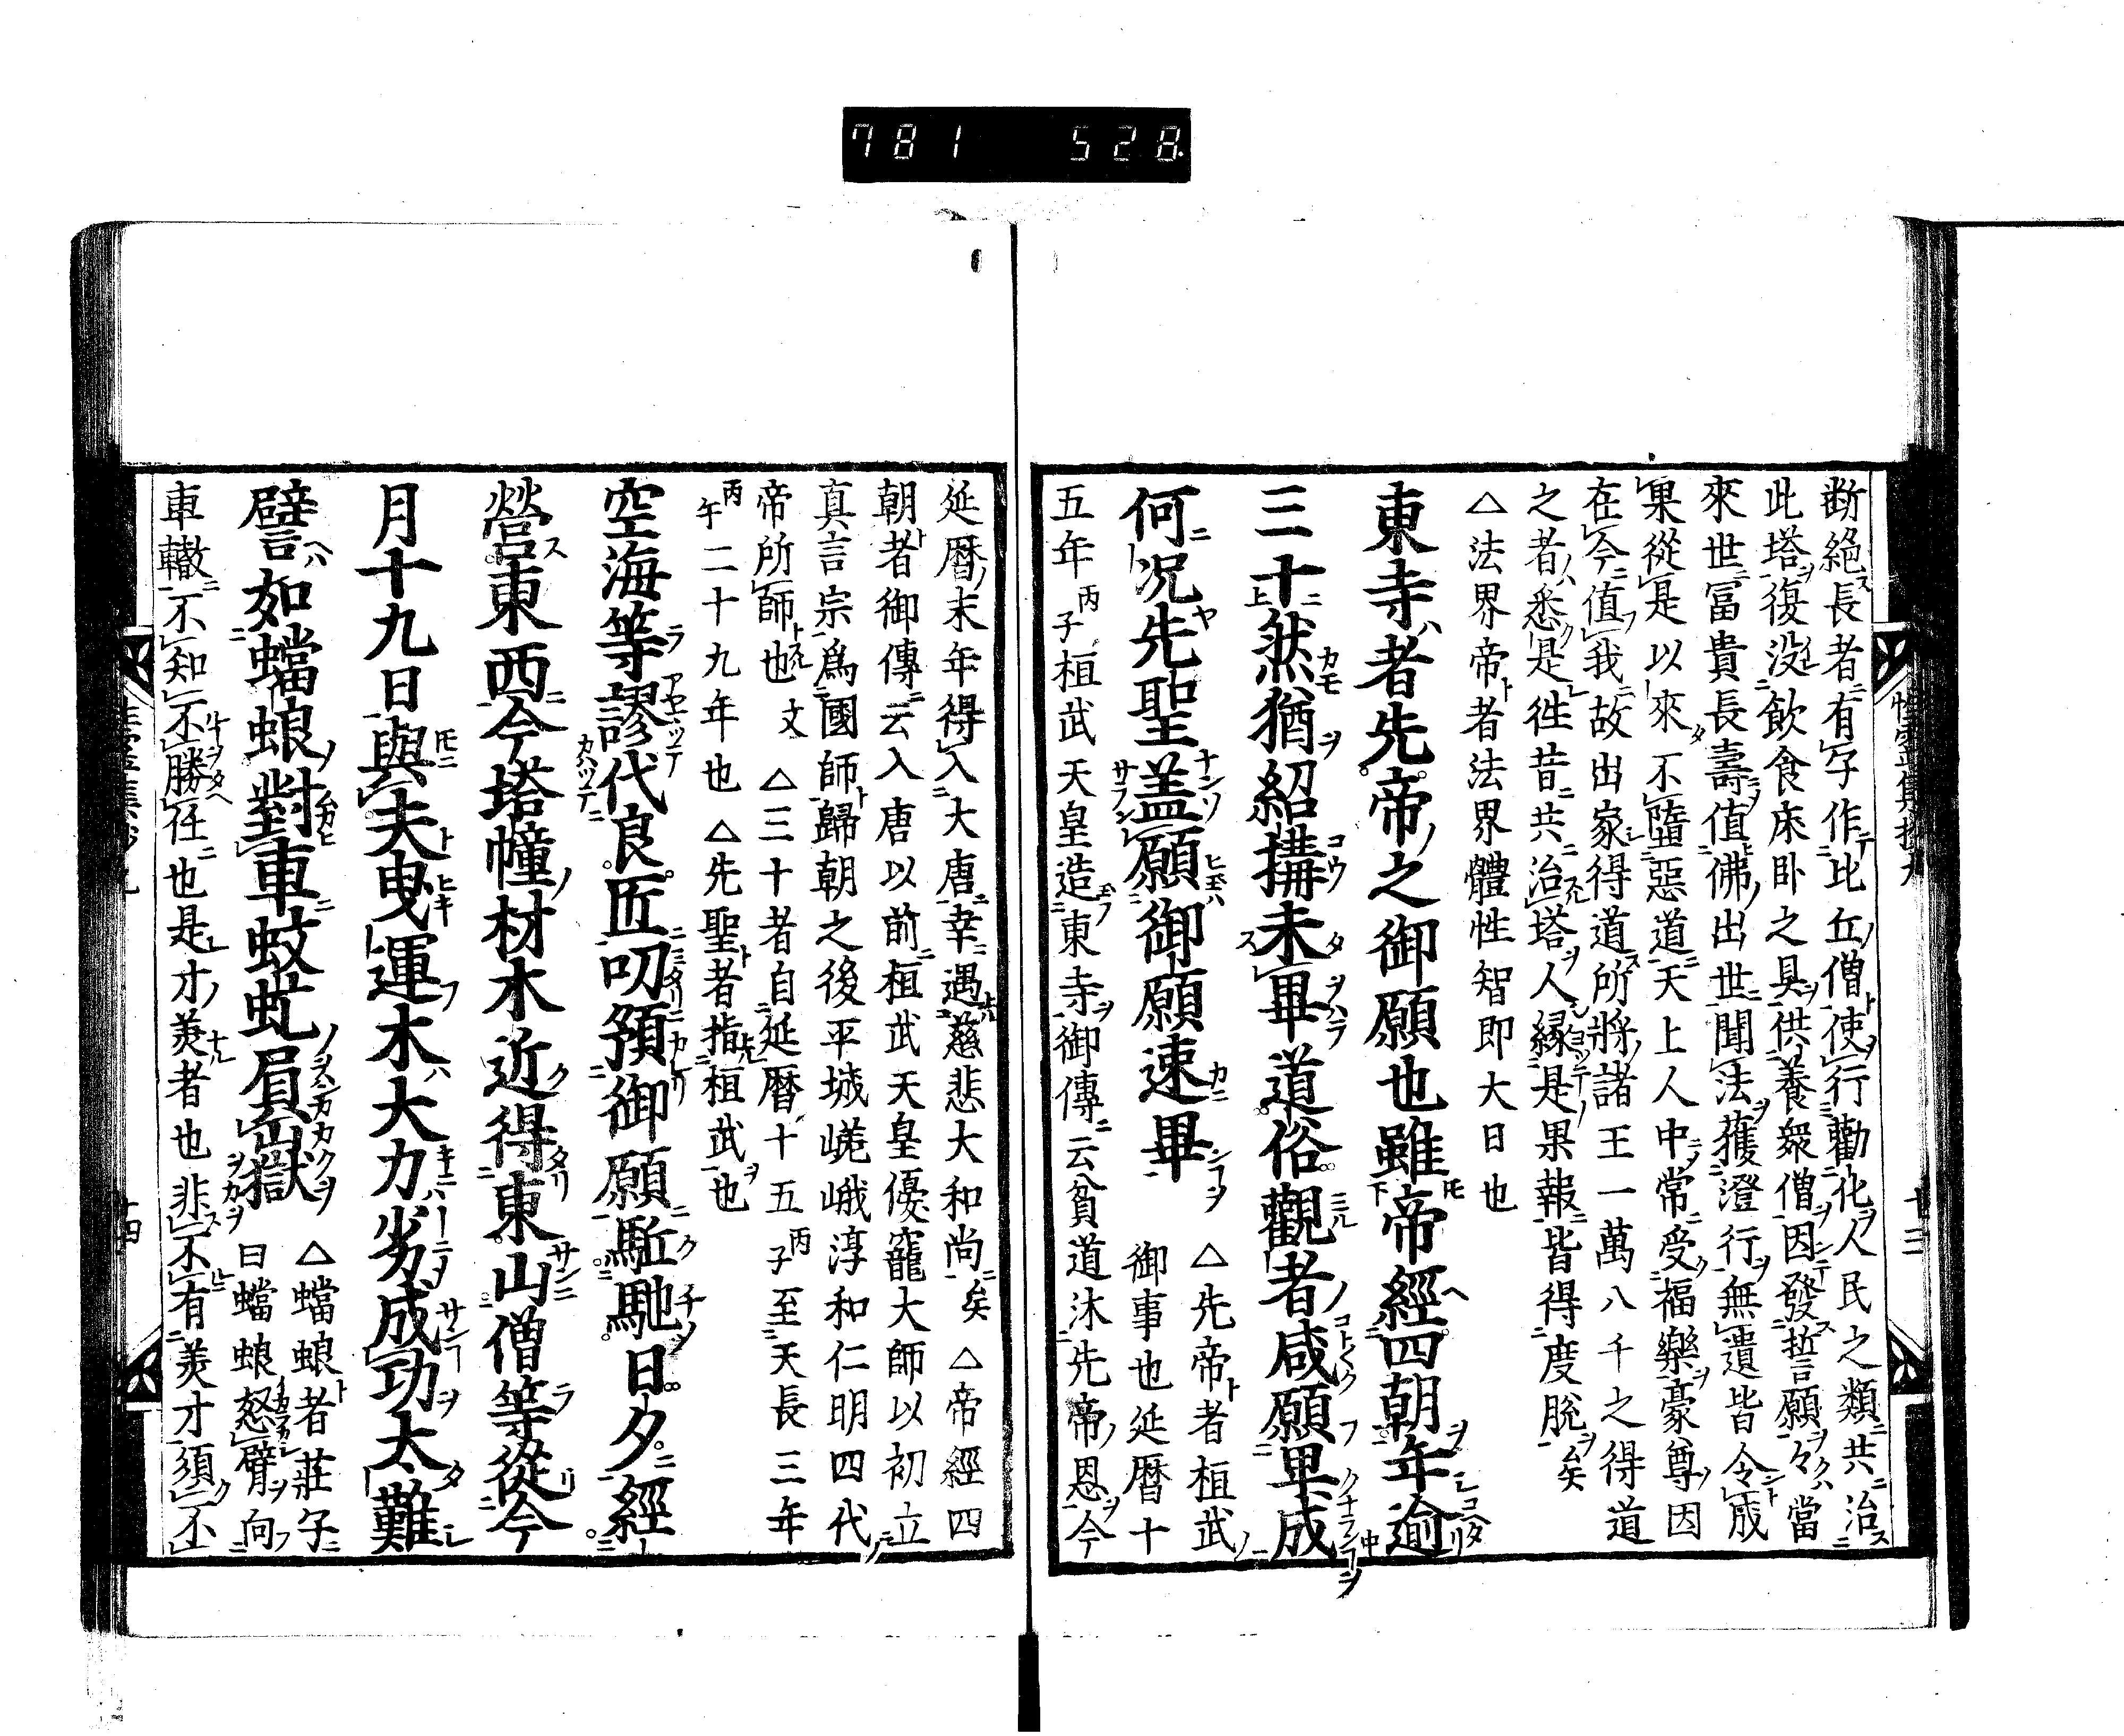 781 528
断絶長者有字作比丘僧使行勸化人民之類共治
此塔復没飲食床卧之具供養衆僧因發誓願々當
來世冨貴長壽值佛出世聞法獲澄行無遺皆令成
果從是以來不墮惡道天上人中常受福樂豪尊因
在今值我故出家得道所將諸王一萬八千之得道
之者悉是徃昔共治塔人縁是果報皆得度脱矣
△法界帝者法界體性智即大日也
東寺者先帝之御願也雖帝經四朝年逾
三十然猶紹搆未畢道俗觀者咸願早成
何况先聖盖願御願速畢
△先帝者桓武
御事也延曆十
五年丙子桓武天皇造東寺御傳云貧道沐先帝恩今
延曆末年得入大唐幸遇慈悲大和尚矣△帝經四
朝者御傳云入唐以前桓武天皇優寵大師以初立
真言宗爲國師歸朝之後平城嵯峨淳和仁明四代
帝所師也文△三十者自延曆十五丙子至天長三年
丙午二十九年也△先聖者指桓武也
空海等謬代良匠叨預御願駈馳日夕經
營東西今塔幢材木近得東山僧等從今
月十九日與夫曳運木大力劣成功太難
譬如蟷蜋對車蚊虻屓嶽
△蟷蜋者莊子
曰蟷蜋怒臂向
車轍不知不勝任也是才羙者也非不有羙才須不